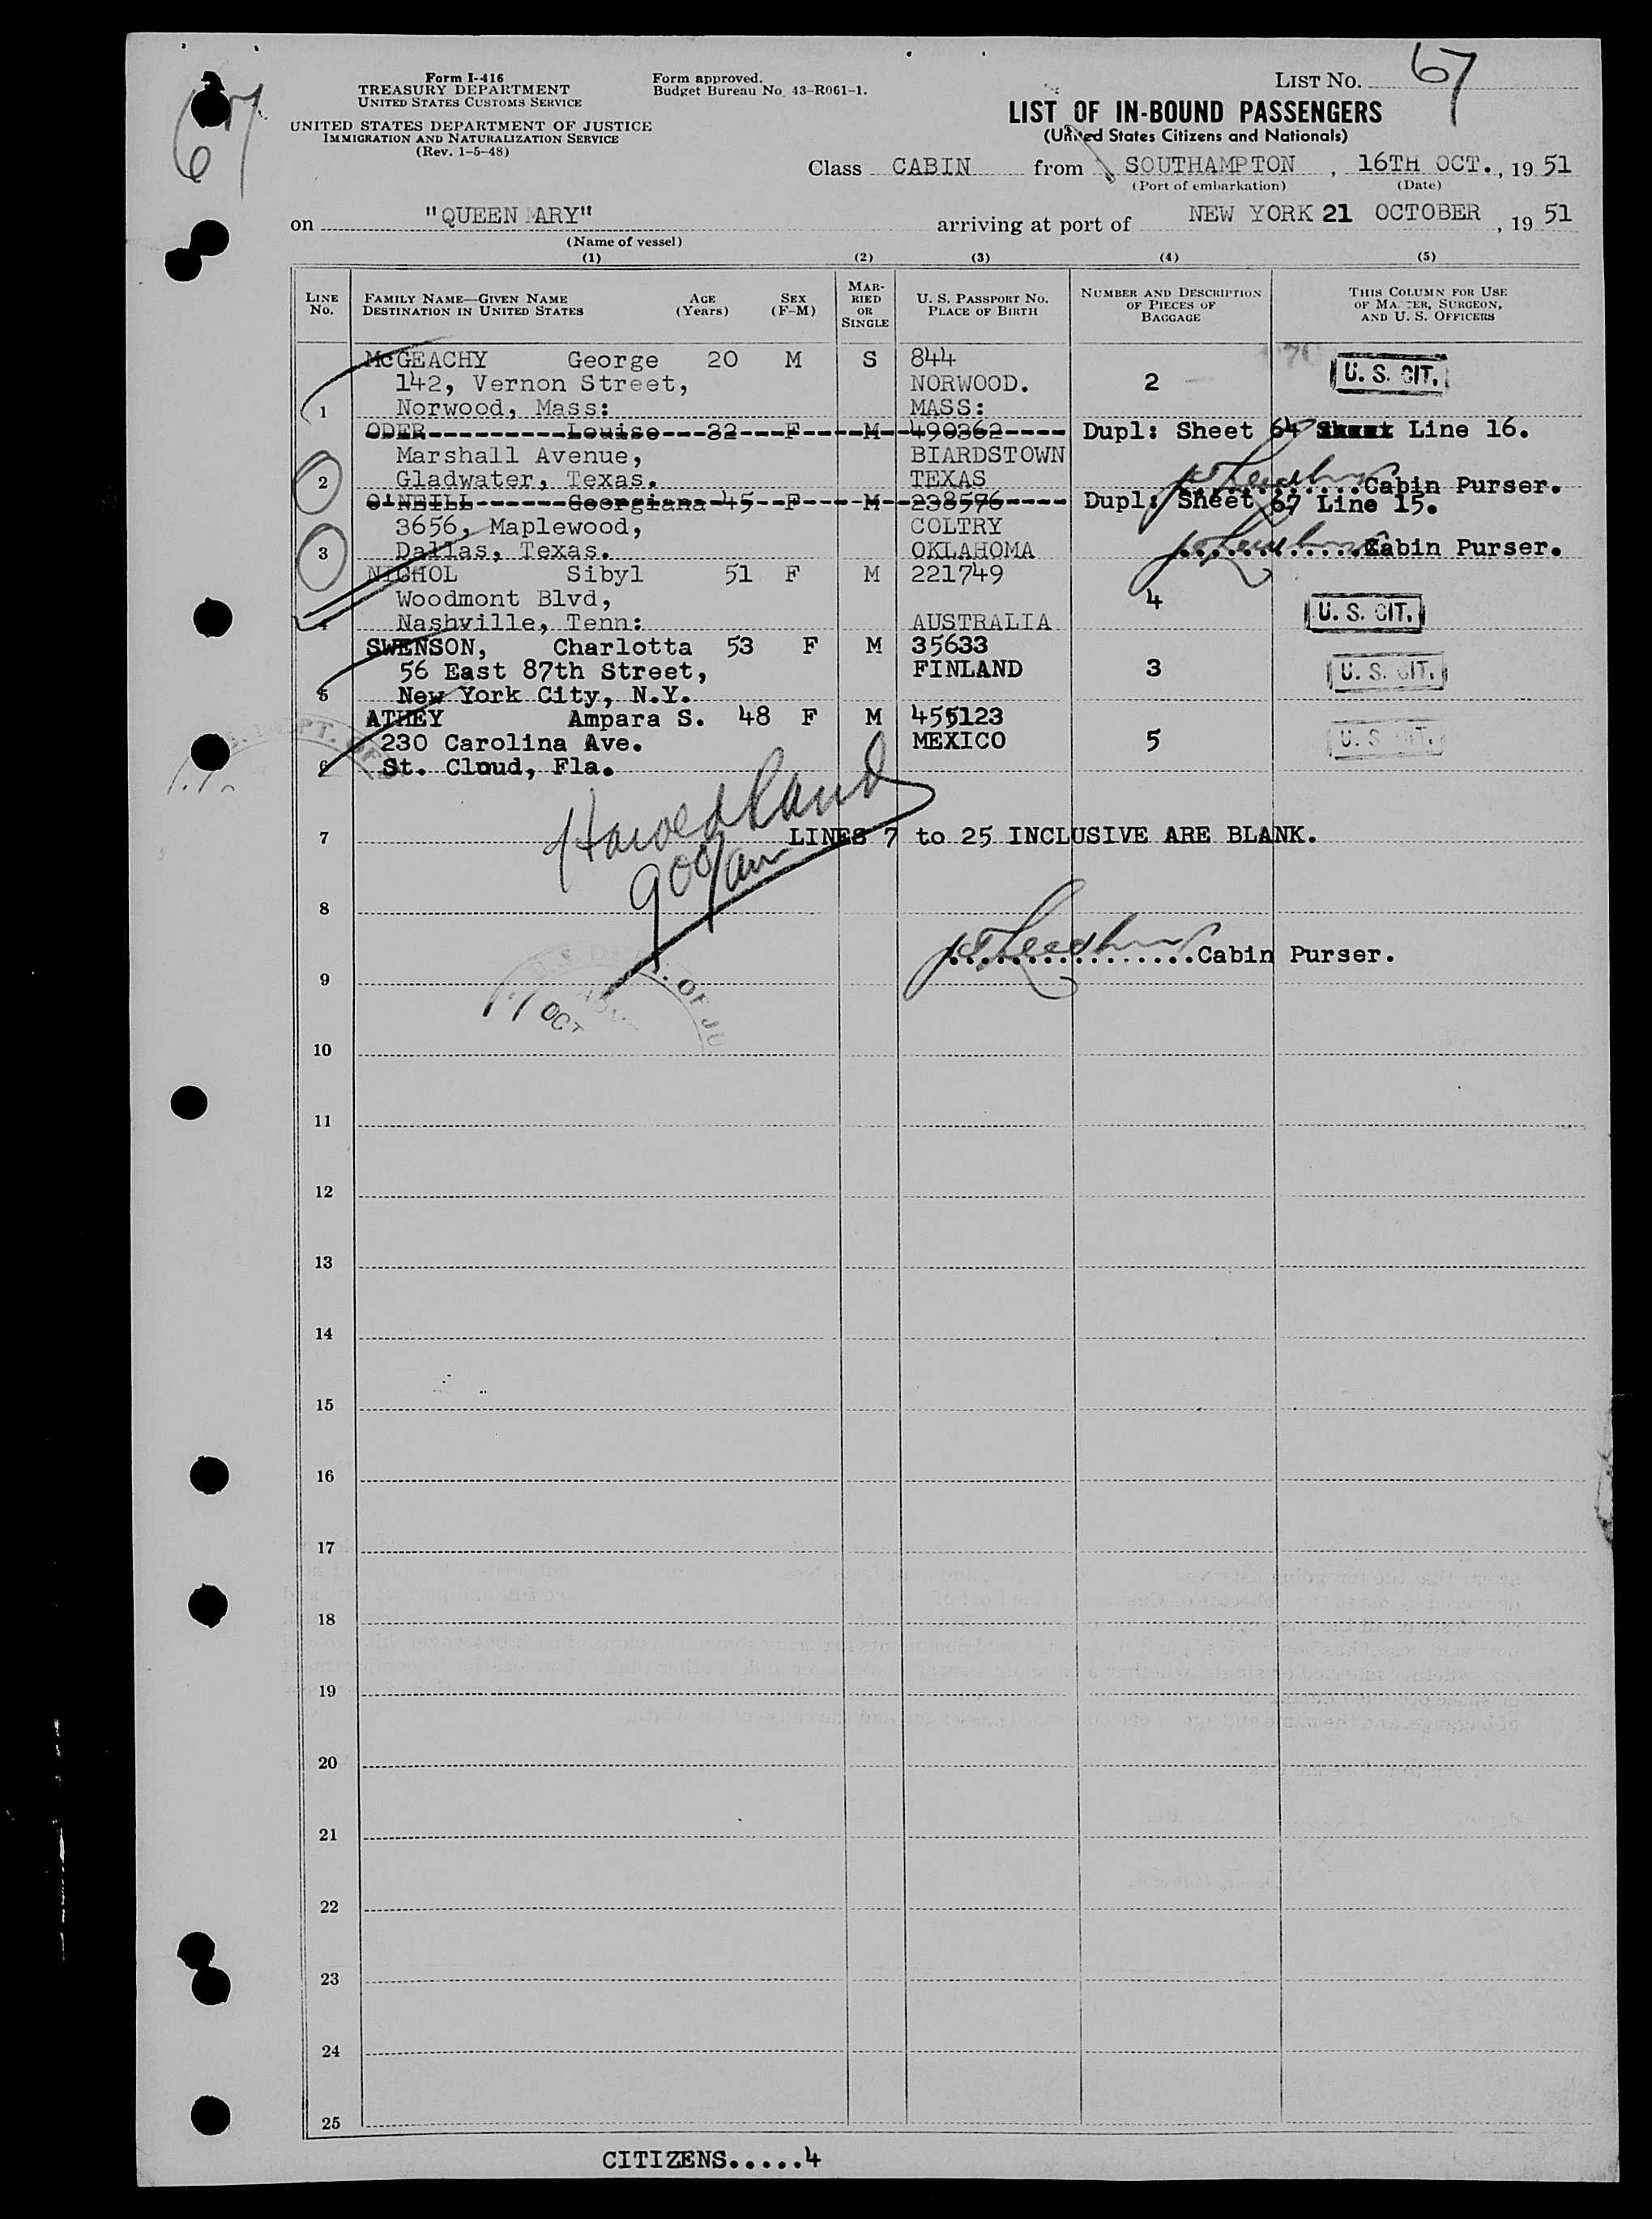 67
67
Form I-416
TREASURY DEPARTMENT
UNITED STATES CUSTOMS SERVICE
UNITED STATES DEPARTMENT OF JUSTICE
IMMIGRATION AND NATURALIZATION SERVICE
(Rev. 1-5-48)
Form approved.
Budget Bureau No. 43-R061-1.
LIST NO.
LIST OF IN-BOUND PASSENGERS
(United States Citizens and Nationals)
Class CABIN from SOUTHAMPTON, 16TH OCT., 19 51
(Port of embarkation) (Date)
on "QUEEN MARY" arriving at port of NEW YORK 21 OCTOBER, 19 51
(Name of vessel)
(1) (2) (3) (4) (5)
LINE NO.
FAMILY NAME—GIVEN NAME DESTINATION IN UNITED STATES
AGE (Years)
SEX (F-M)
MARRIED OR SINGLE
U. S. PASSPORT NO. PLACE OF BIRTH
NUMBER AND DESCRIPTION OF PIECES OF BAGGAGE
THIS COLUMN FOR USE OF MASTER, SURGEON, AND U. S. OFFICERS
McGEACHY George 20 M S 844
142, Vernon Street, NORWOOD. 2 U. S. CIT.
1 Norwood, Mass: MASS:
ODER Louise 32 F M 490362 Dupl: Sheet 64 Line 16.
Marshall Avenue, BIARDSTOWN
2 Gladwater, Texas. TEXAS Cabin Purser.
O'NEILL Georgiana 45 F M 238576 Dupl: Sheet 67 Line 15.
3656, Maplewood, COLTRY
3 Dallas, Texas. OKLAHOMA Cabin Purser.
NICHOL Sibyl 51 F M 221749
Woodmont Blvd, 4 U. S. CIT.
4 Nashville, Tenn: AUSTRALIA
SWENSON, Charlotta 53 F M 35633
56 East 87th Street, FINLAND 3 U. S. CIT.
5 New York City, N.Y.
ATHEY Ampara S. 48 F M 455123
230 Carolina Ave. MEXICO 5 U. S. CIT.
6 St. Cloud, Fla.
7 LINES 7 to 25 INCLUSIVE ARE BLANK.
900/am
8
Cabin Purser.
9
OCT
10
11
12
13
14
15
16
17
18
19
20
21
22
23
24
25
CITIZENS.....4